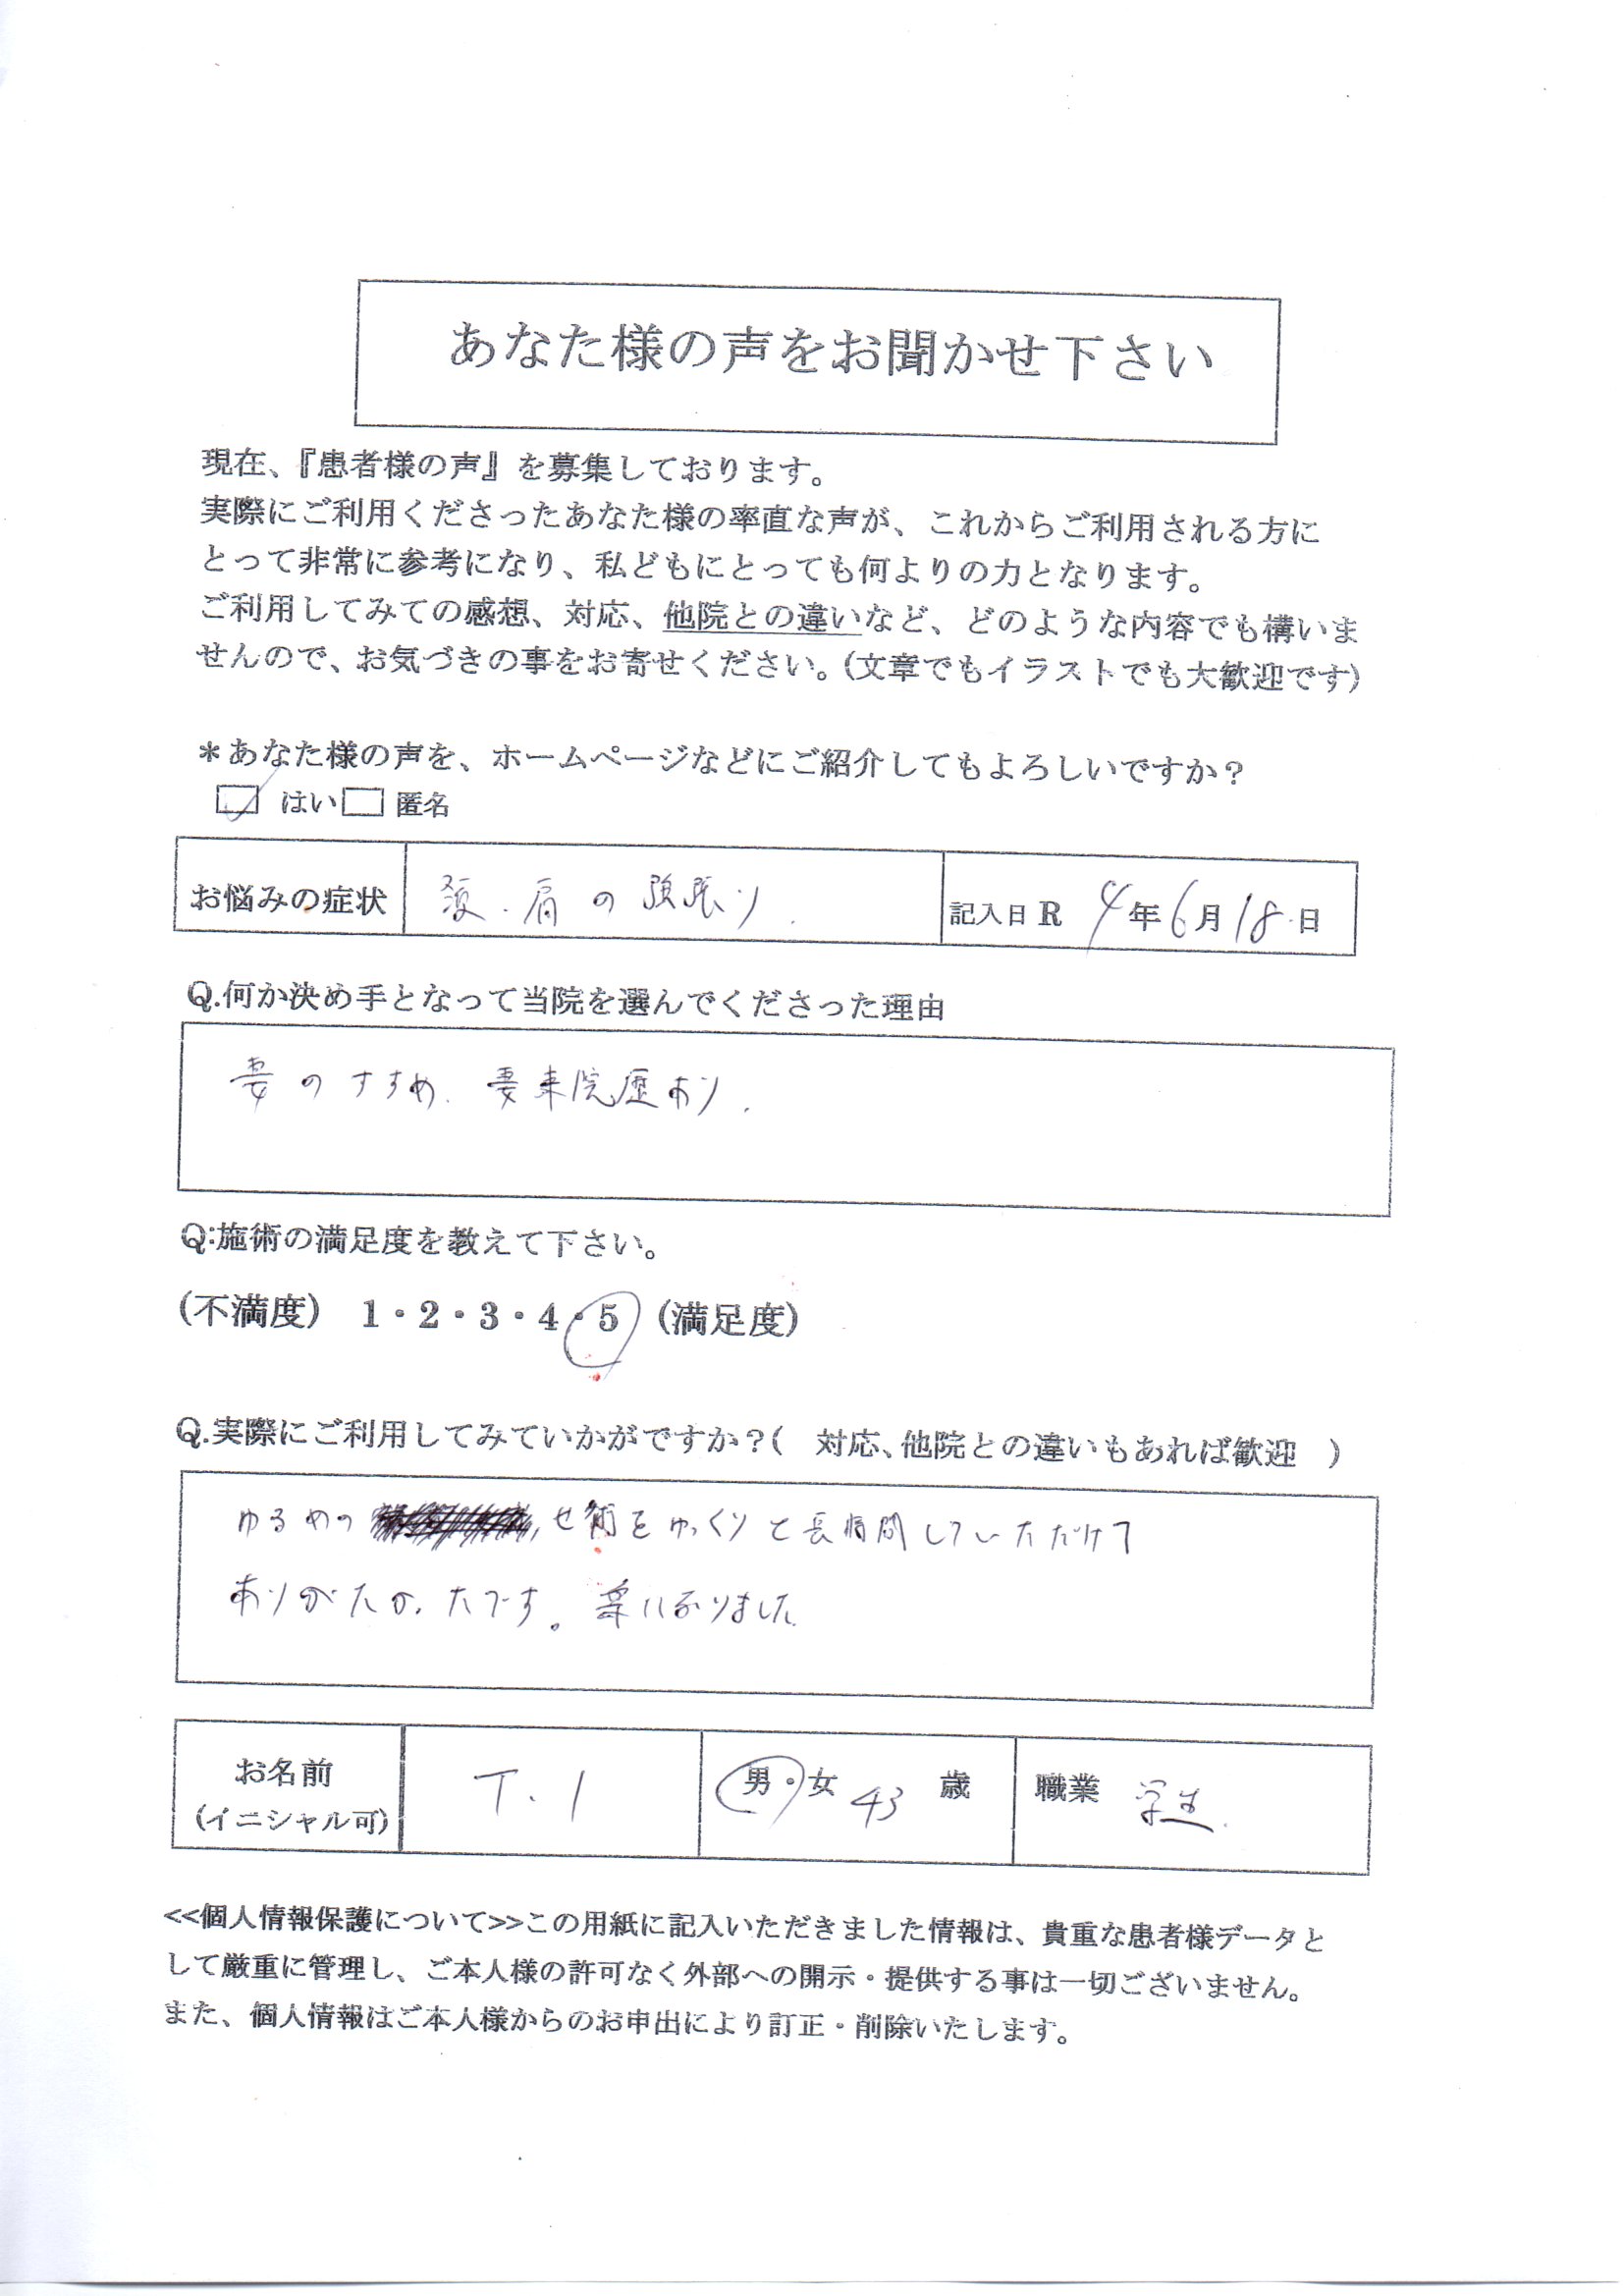 あなた様の声をお聞かせ下さい
現在、『患者様の声』を募集しております。
実際にご利用くださったあなた様の率直な声が、これからご利用される方に
とって非常に参考になり、私どもにとっても何よりの力となります。
ご利用してみての感想、対応、他院との違いなど、どのような内容でも構いま
せんので、お気づきの事をお寄せください。(文章でもイラストでも大歓迎です)
＊あなた様の声を、ホームページなどにご紹介してもよろしいですか？
はい 匿名
お悩みの症状 肩の 張り 記入日 R 4年 6月 18日
Q.何か決め手となって当院を選んでくださった理由
妻のすすめ. 妻来院歴あり.
Q:施術の満足度を教えて下さい。
(不満度) 1・2・3・4・5 (満足度)
Q.実際にご利用してみていかがですか？( 対応、他院との違いもあれば歓迎 )
ゆるめの せ術をゆっくりと長時間していただけて
ありがたかったです。楽になりました
お名前 T. I 男・女 43 歳 職業 学生.
(イニシャル可)
<<個人情報保護について>>この用紙に記入いただきました情報は、貴重な患者様データと
して厳重に管理し、ご本人様の許可なく外部への開示・提供する事は一切ございません。
また、個人情報はご本人様からのお申出により訂正・削除いたします。